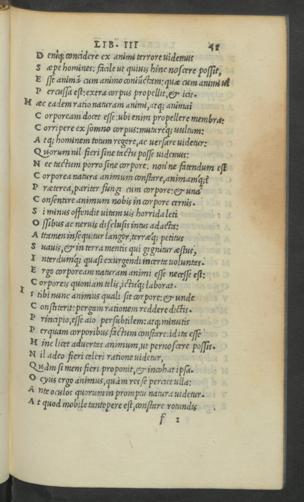 LIB. III 41
Deniq; concidere ex animi terrore uidemus
Sæpe homines: facile ut quiuis hinc noscere possit,
Esse animũ cum animo coniũctam: quæ cum animi ui
Percussa est: exera corpus propellit, & icit.
Hæc eadem ratio naturam animi, atq; animai
Corpoream docet esse: ubi enim propellere membra:
Corripere ex somno corpus: mutareq; uultum:
Atq; hominem totum regere, ac uersare uidetur:
Quorum nil fieri sine tactu posse uidemus:
Nec tactum porro sine corpore. non ne fatendum est
Corporea natura animum constare, animamq;?
Præterea, pariter fungi cum corpore: & una
Consentire animum nobis in corpore cernis.
Si minus offendit uitam uis horrida leti
Ossibus ac neruis disclusis intus adacta:
Attamen insequitur langor, terræq; petitus
Suauis, & in terra mentis qui gignitur æstus,
Interdumq; quasi exurgendi incerta uoluntas.
Ergo corpoream naturam animi esse necesse est:
Corporeis quoniam telis, ictuq; laborat.
Is tibi nunc animus quali sit corpore: & unde
Constiterit: pergam rationem reddere dictis.
Principio, esse aio persubtilem: atq; minutis
Perquam corporibus factum constare: id ita esse
Hinc licet aduertas animum, ut pernoscere possis.
Nil adeo fieri celeri ratione uidetur,
Quàm si mens fieri proponit, & incohat ipsa.
Ocyus ergo animus, quàm res se perciet ulla:
Ante oculos quorum in promptu natura uidetur.
At quod mobile tantopere est, constare rotundis
f 1